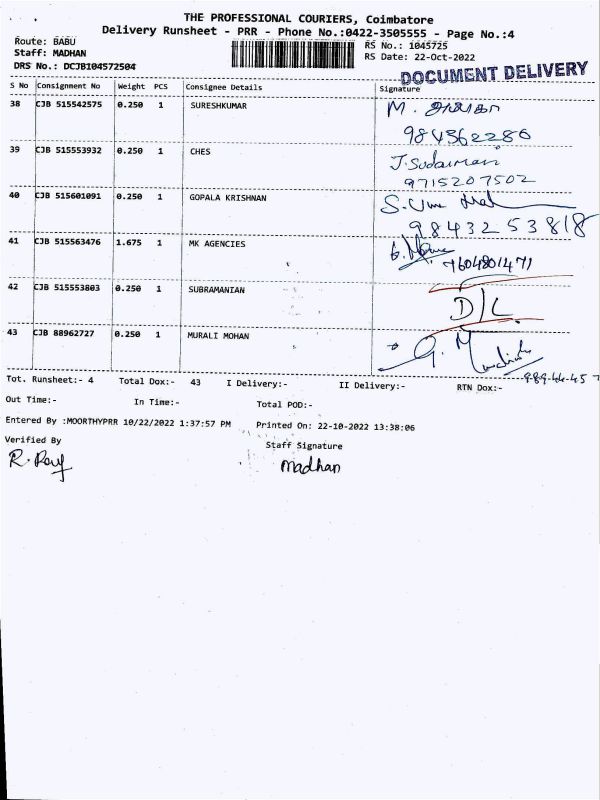 THE PROFESSIONAL COURIERS, Coimbatore
Delivery Runsheet - PRR - Phone No.:0422-3505555 - Page No.:4
Route: BABU
RS No.: 1045725
Staff: MADHAN
RS Date: 22-Oct-2022
DRS No.: DCJB104572504
DOCUMENT DELIVERY
S No Consignment No Weight PCS Consignee Details Signature
38 CJB 515542575 0.250 1 SURESHKUMAR M.
984362286
39 CJB 515553932 0.250 1 CHES J.Sudaimani
9715207502
40 CJB 515601091 0.250 1 GOPALA KRISHNAN S.
9843253818
41 CJB 515563476 1.675 1 MK AGENCIES
7604801471
42 CJB 515553803 0.250 1 SUBRAMANIAN D/L
43 CJB 88962727 0.250 1 MURALI MOHAN G.
989-44-457
Tot. Runsheet:- 4 Total Dox:- 43 I Delivery:- II Delivery:- RTN Dox:-
Out Time:- In Time:- Total POD:-
Entered By :MOORTHYPRR 10/22/2022 1:37:57 PM Printed On: 22-10-2022 13:38:06
Verified By Staff Signature
R. madhan